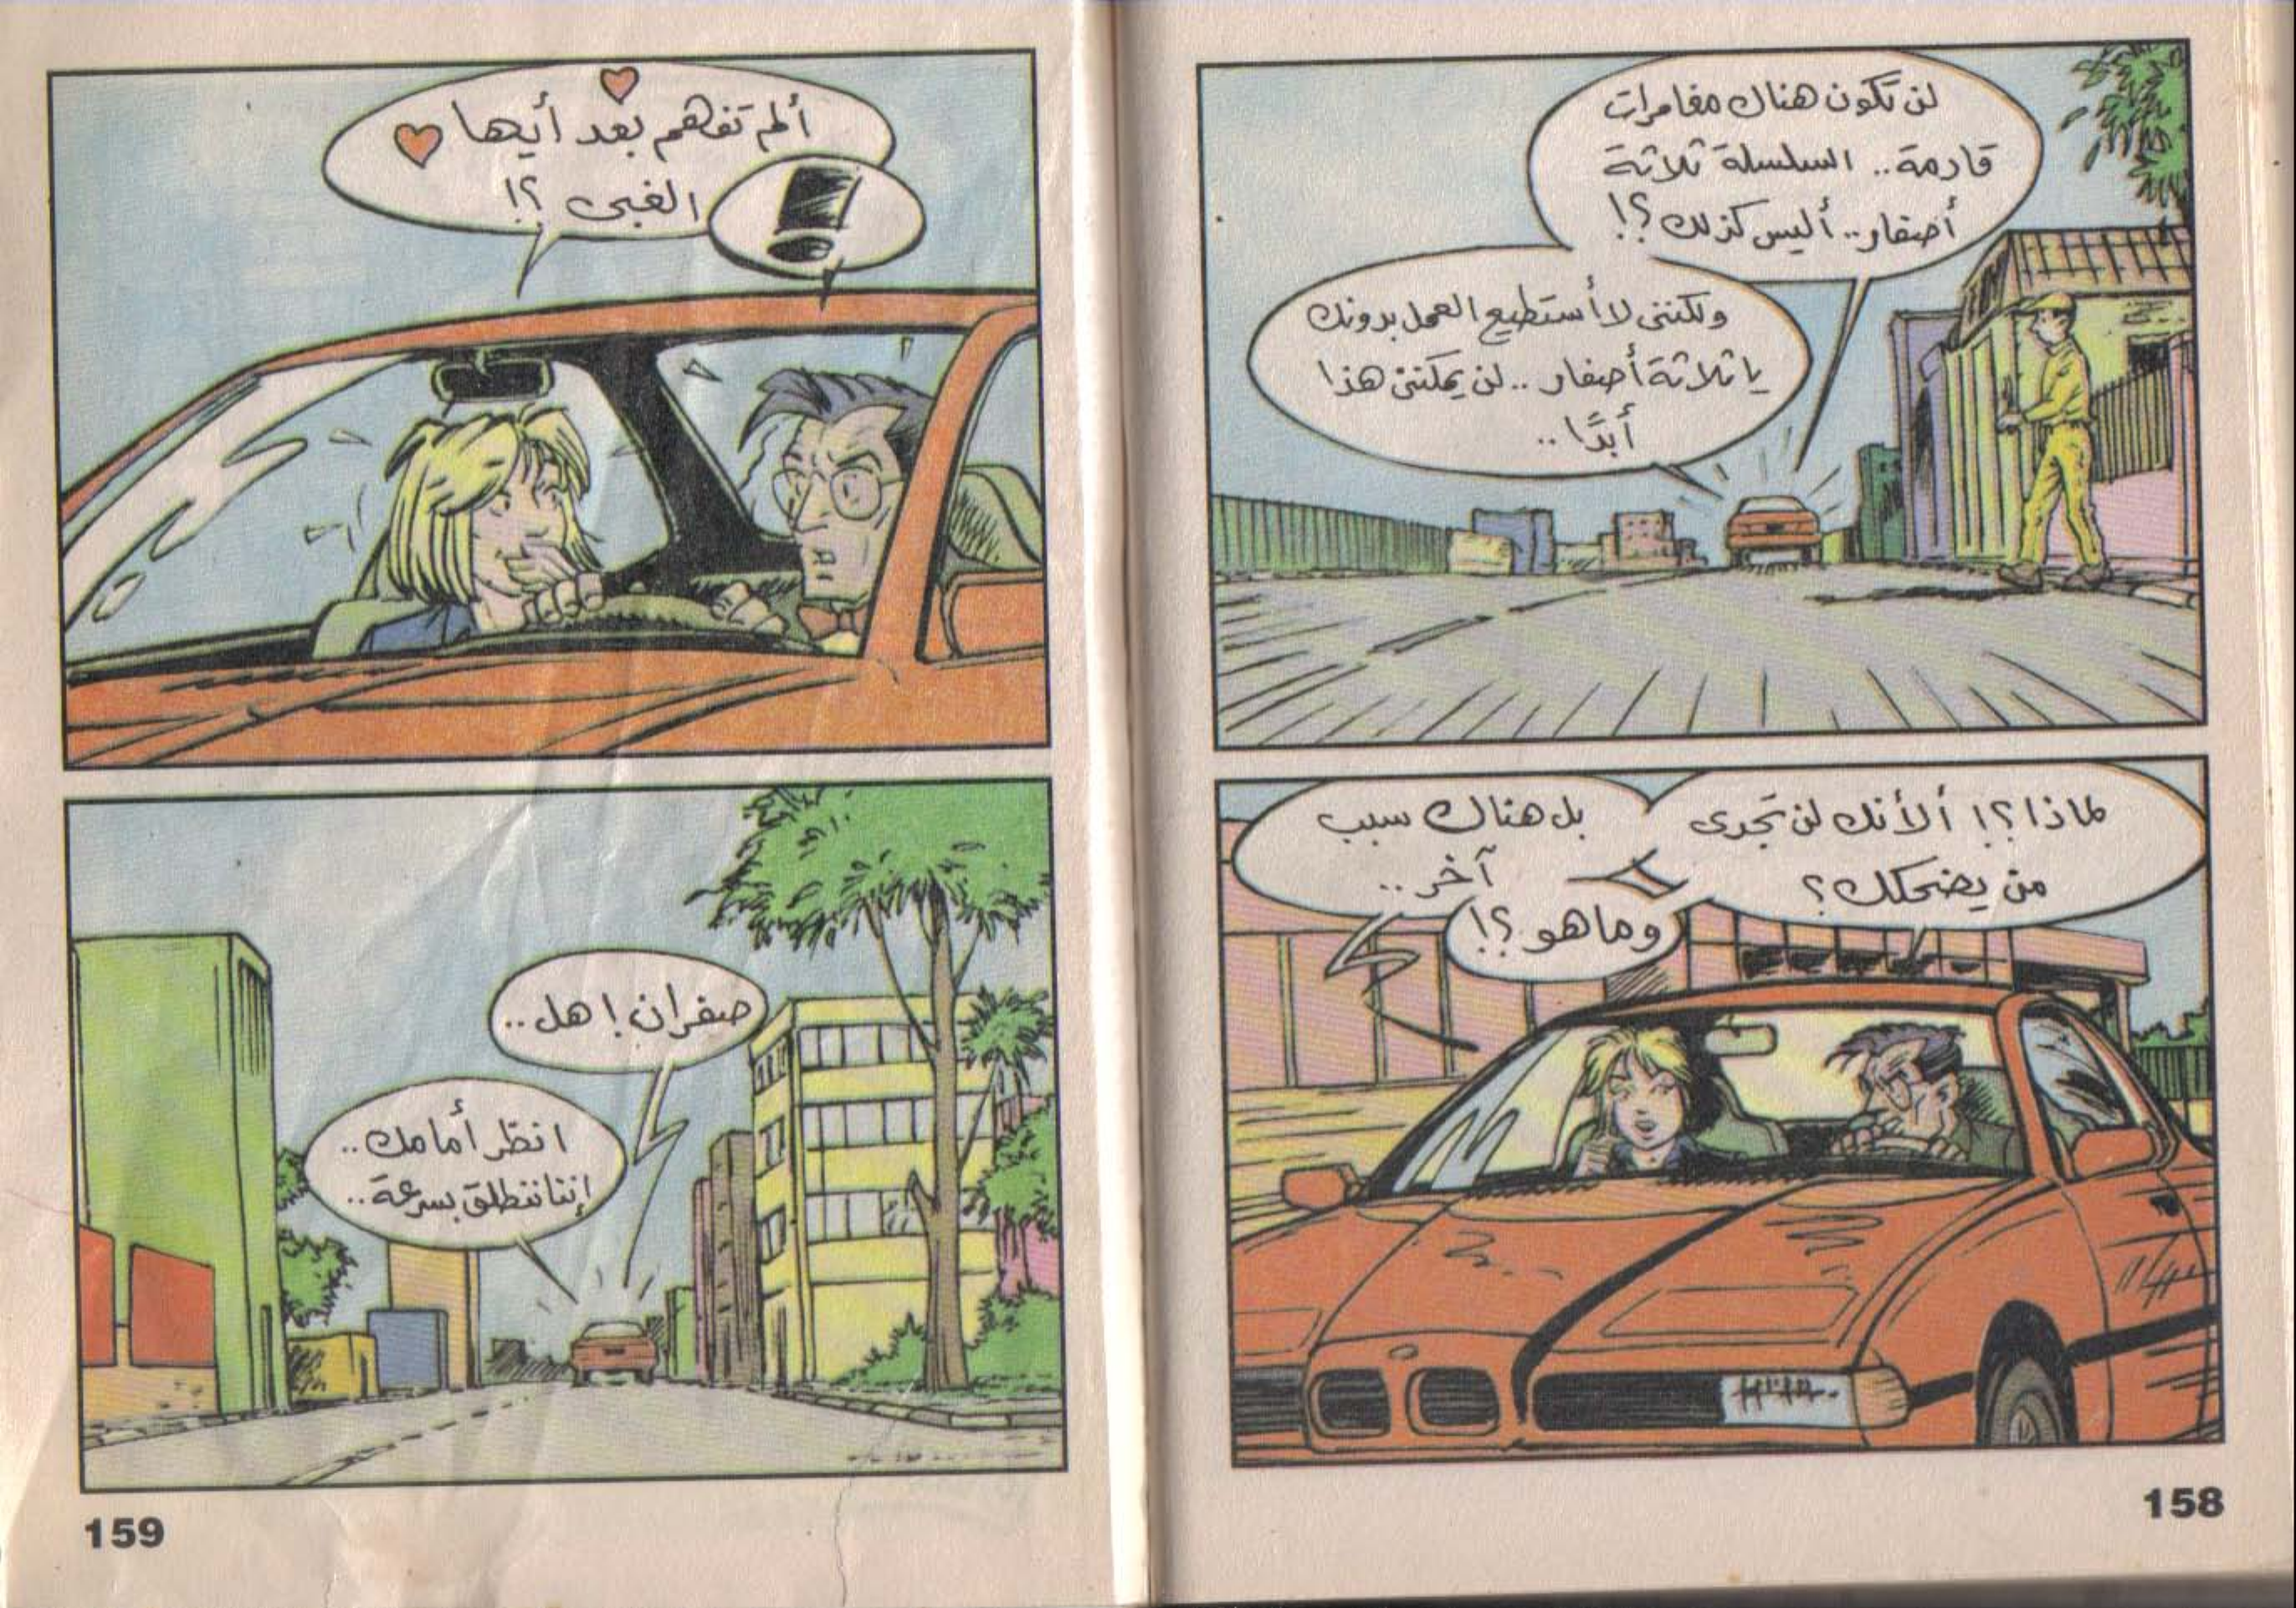 لن تكون هناك مغامرات
قادمة.. السلسلة ثلاثة
أصفار.. أليس كذلك؟!
ولكننى لا أستطيع العمل بدونك
يا ثلاثة أصفار.. لن يمكننى هذا
أبدًا..
لماذا؟! ألأنك لن تجدى
من يضحكك؟
بل هناك سبب
آخر..
وما هو؟!
158
ألم تفهم بعد أيها
الغبى؟!
!
صفران! هل..
انظر أمامك..
إننا ننطلق بسرعة..
159